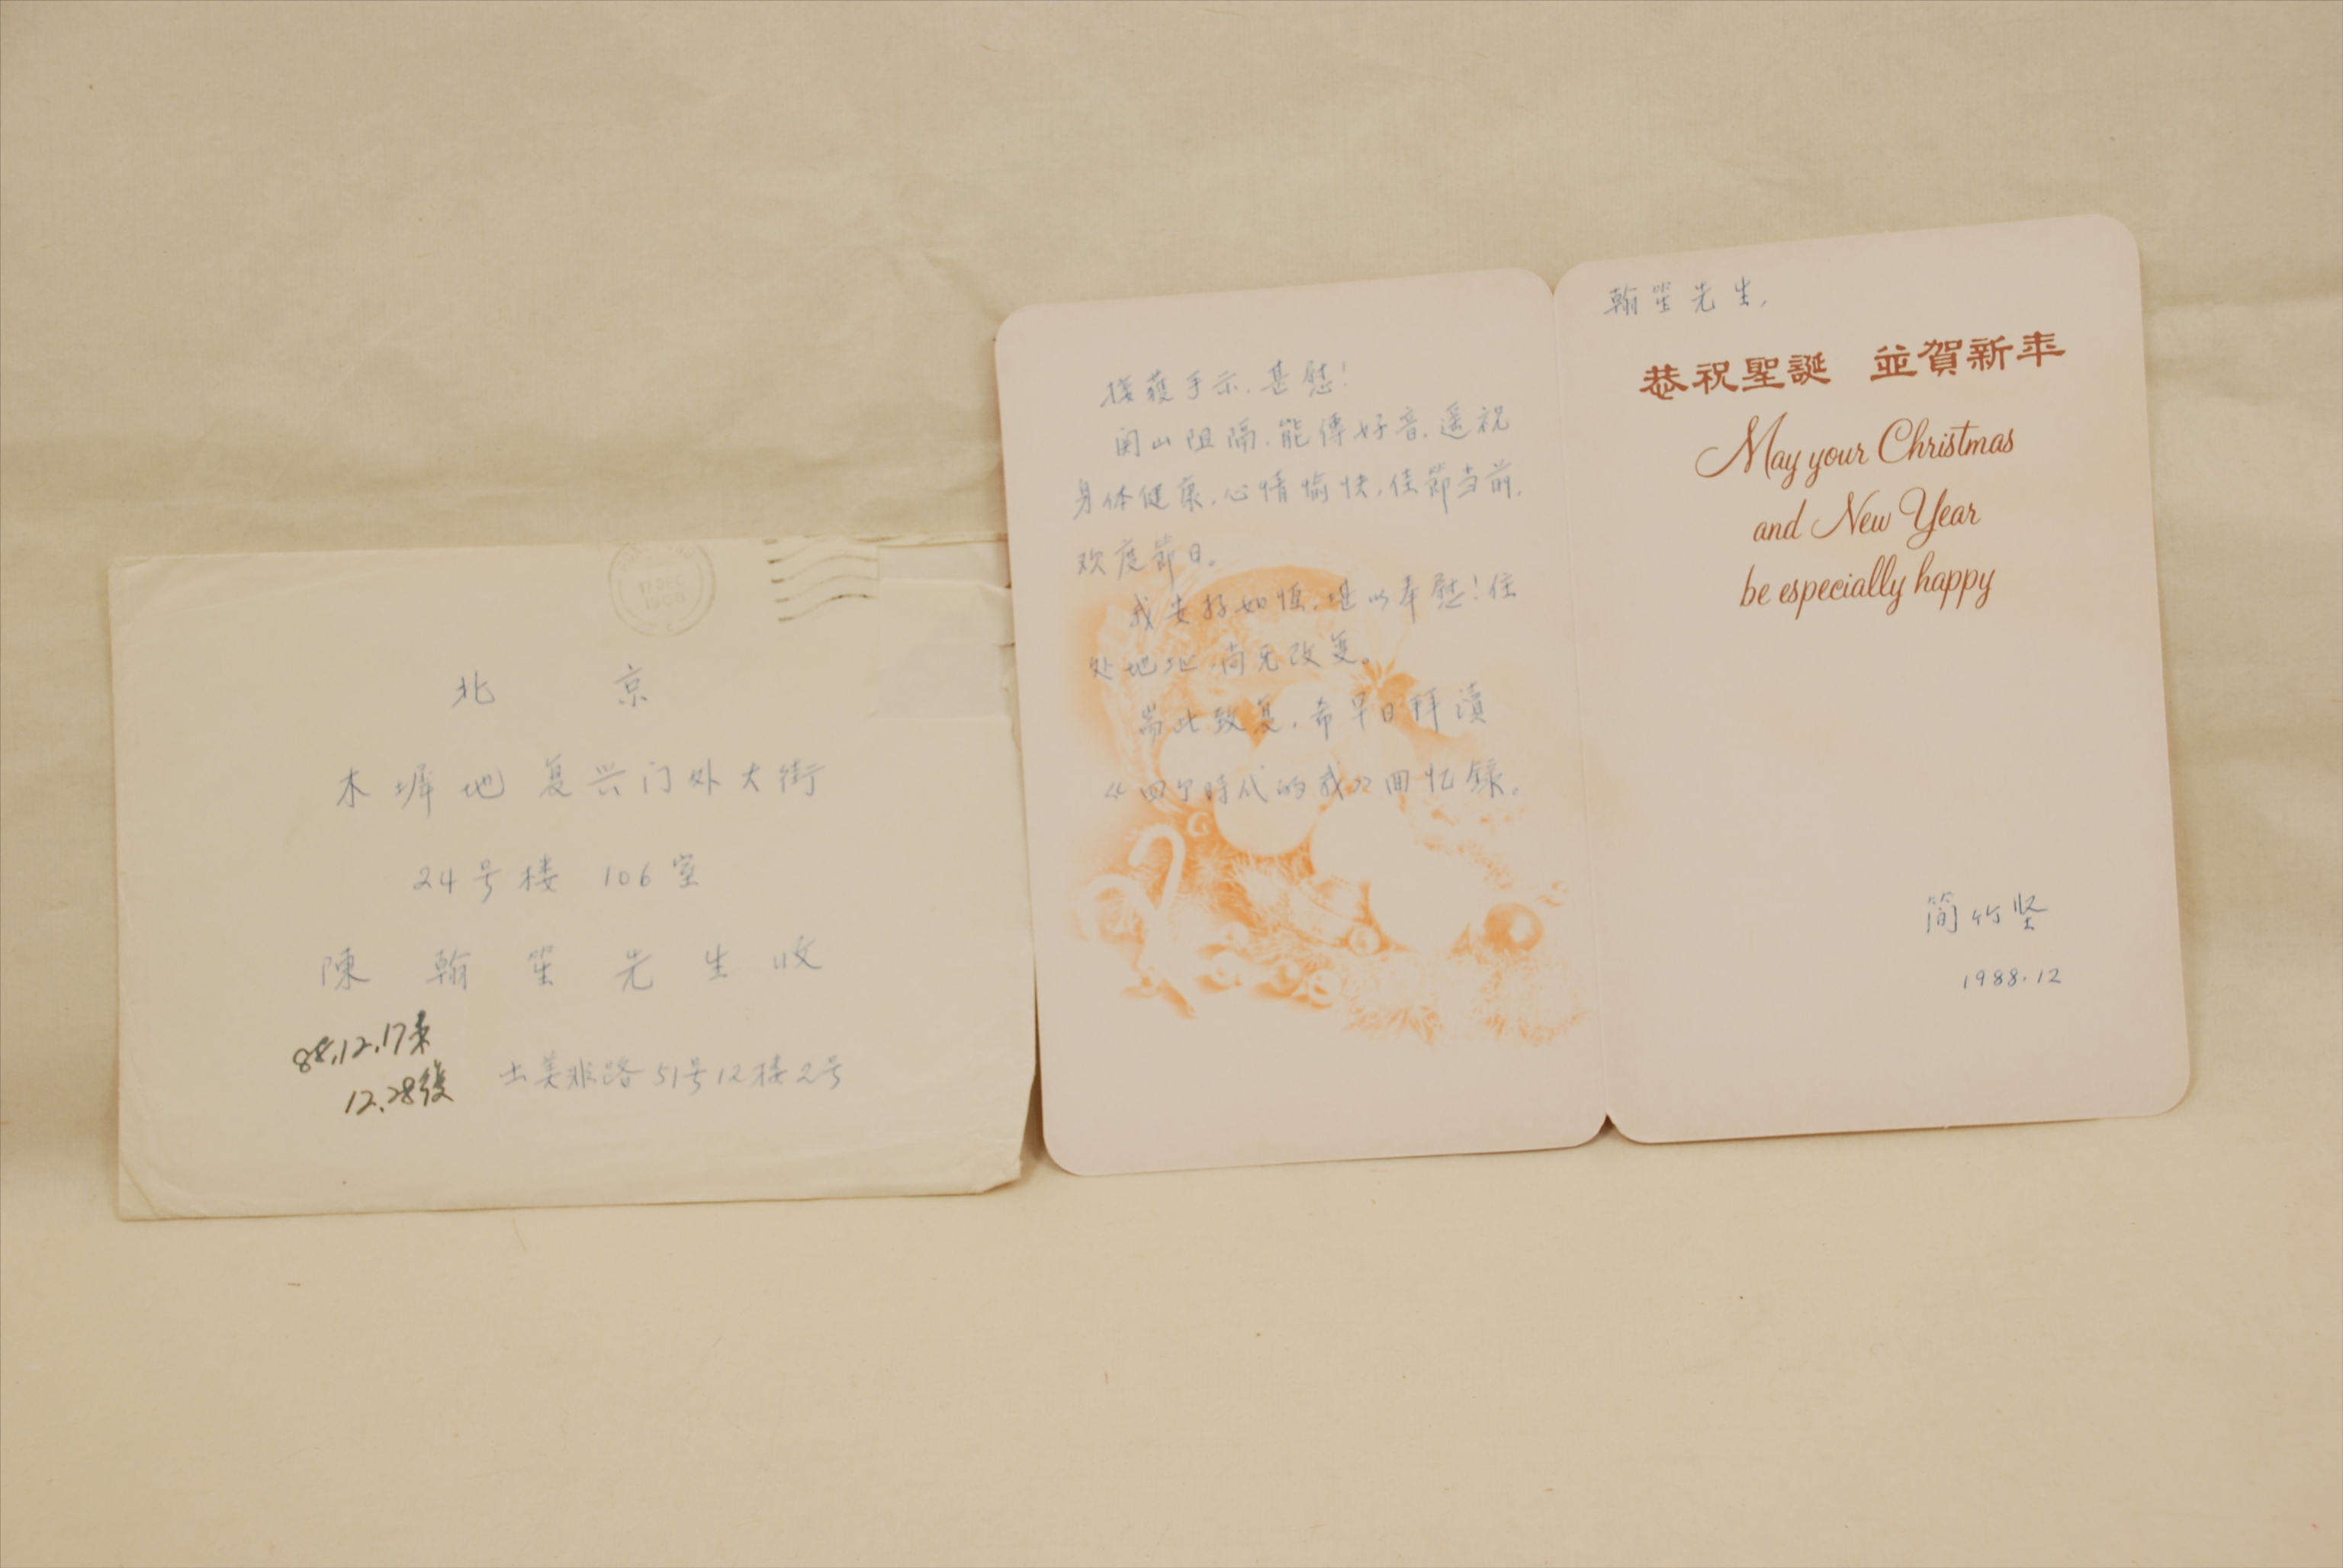 17 DEC
北 京
木墀地 复兴门外大街
24号楼 106室
陳翰笙先生收
88.12.17来
12.28復
士美非路51号12楼2号
接获手示,甚慰!
関山阻隔,能傳好音,遥祝
身体健康,心情愉快,佳節当前,
欢度節日。
我安好如恒,堪以奉慰!住
处地址,尚无改变。
耑此致复,希早日拜讀
《四个時代的我》回忆録。
翰笙先生,
恭祝聖誕 並賀新年
May your Christmas
and New Year
be especially happy
简竹坚
1988.12